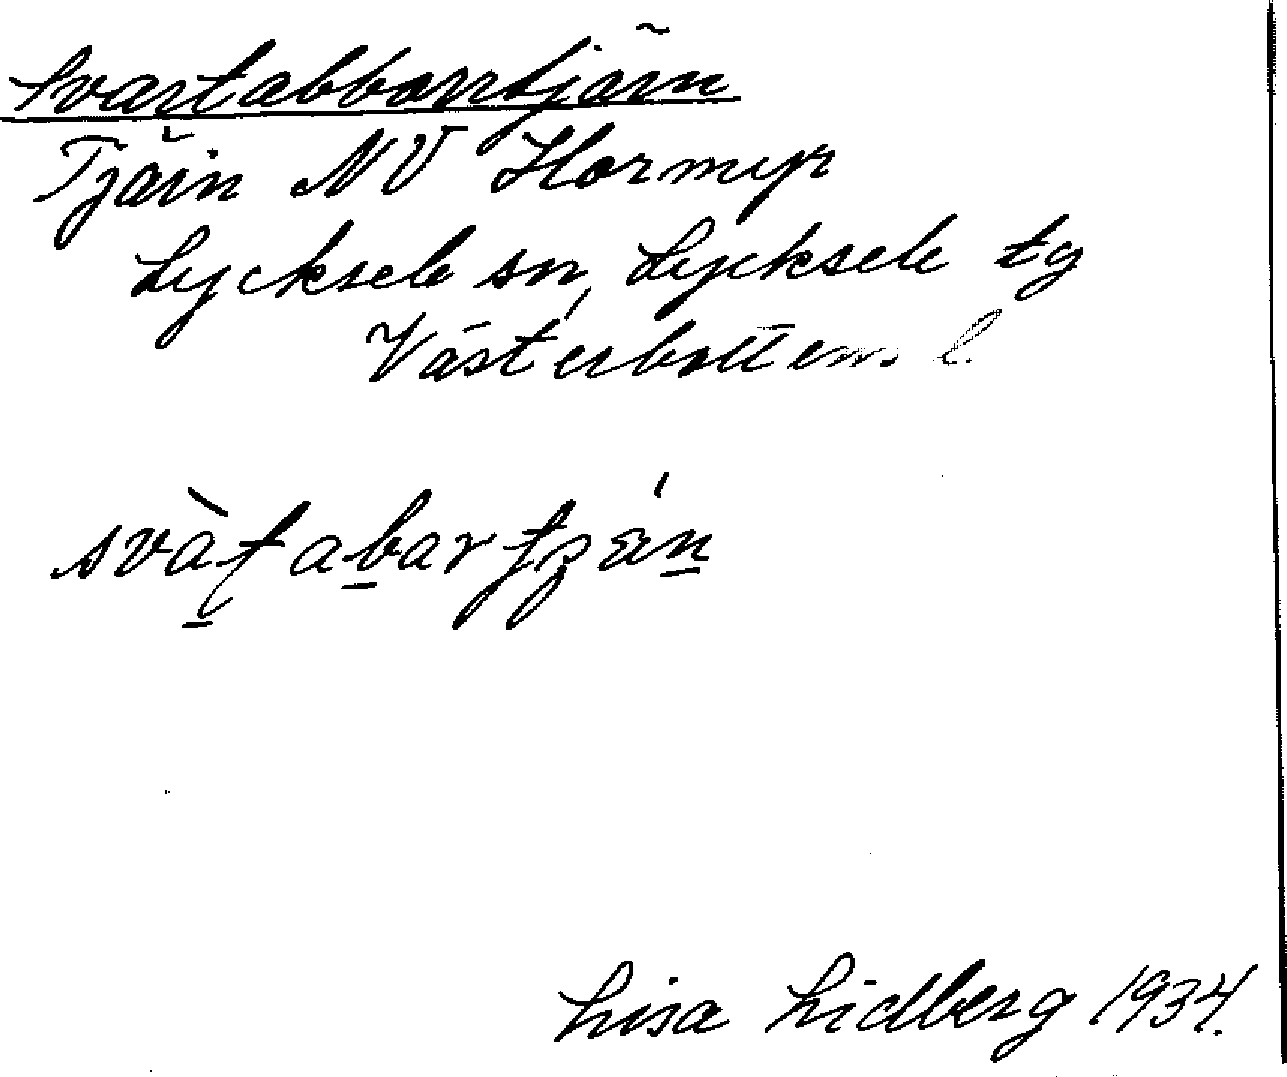 Svartabborrtjärn
Tjärn NV Hormyr
Lycksele sn, Lycksele tg
Västerbottens l.
Lisa Lidberg 1934.